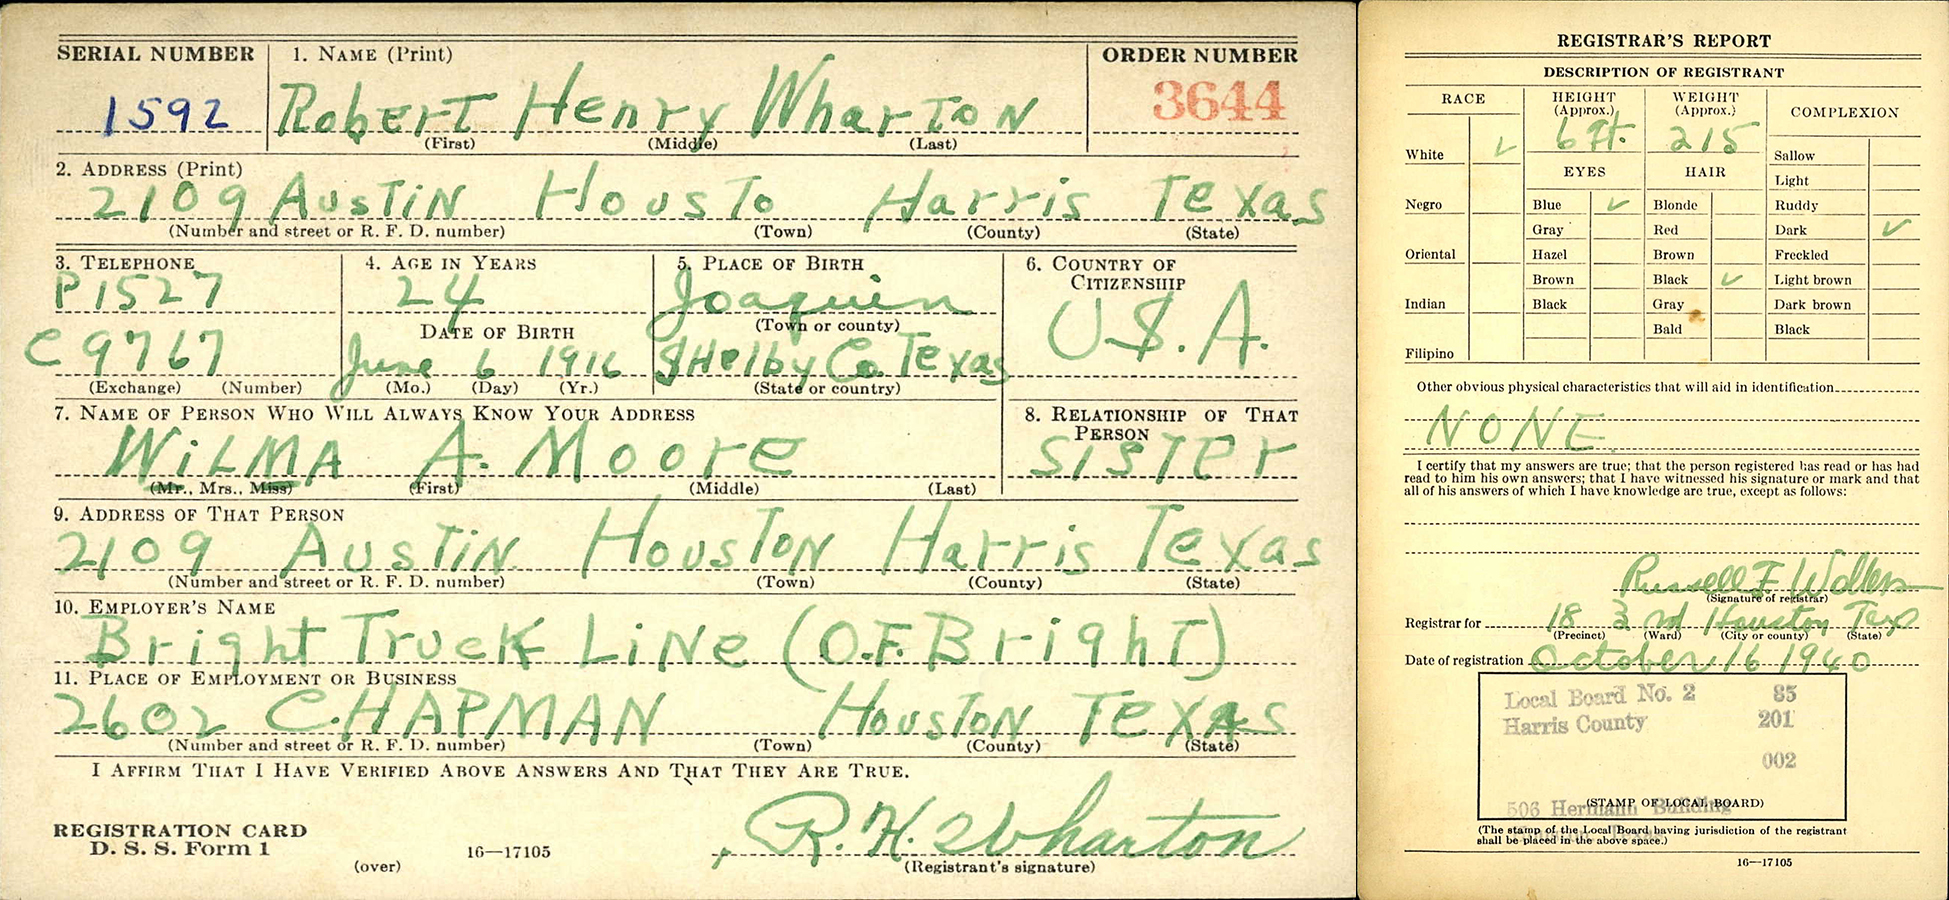 SERIAL NUMBER 1. NAME (Print) ORDER NUMBER
1592 Robert Henry Wharton 3644
(First) (Middle) (Last)
2. ADDRESS (Print)
2109 Austin Housto Harris Texas
(Number and street or R. F. D. number) (Town) (County) (State)
3. TELEPHONE 4. AGE IN YEARS 5. PLACE OF BIRTH 6. COUNTRY OF CITIZENSHIP
P1527 24 Joaquin U.S.A.
(Town or county)
DATE OF BIRTH
C 9767 June 6 1916 SHelby Co. Texas
(Exchange) (Number) (Mo.) (Day) (Yr.) (State or country)
7. NAME OF PERSON WHO WILL ALWAYS KNOW YOUR ADDRESS 8. RELATIONSHIP OF THAT PERSON
WiLMA A. Moore SISTer
(Mr., Mrs., Miss) (First) (Middle) (Last)
9. ADDRESS OF THAT PERSON
2109 Austin Houston Harris Texas
(Number and street or R. F. D. number) (Town) (County) (State)
10. EMPLOYER'S NAME
Bright Truck Line (O.F. Bright)
11. PLACE OF EMPLOYMENT OR BUSINESS
2602 CHAPMAN Houston TEXAS
(Number and street or R. F. D. number) (Town) (County) (State)
I AFFIRM THAT I HAVE VERIFIED ABOVE ANSWERS AND THAT THEY ARE TRUE.
R. H. Wharton
REGISTRATION CARD
D. S. S. Form 1 16—17105
(over) (Registrant's signature)
REGISTRAR'S REPORT
DESCRIPTION OF REGISTRANT
RACE HEIGHT (Approx.) WEIGHT (Approx.) COMPLEXION
6 ft. 215
White ✓ Sallow
EYES HAIR Light
Negro Blue ✓ Blonde Ruddy
Gray Red Dark ✓
Oriental Hazel Brown Freckled
Brown Black ✓ Light brown
Indian Black Gray Dark brown
Bald Black
Filipino
Other obvious physical characteristics that will aid in identification
NONE
I certify that my answers are true; that the person registered has read or has had
read to him his own answers; that I have witnessed his signature or mark and that
all of his answers of which I have knowledge are true, except as follows:
Russell F
(Signature of registrar)
Registrar for 18 3rd Houston Tex
(Precinct) (Ward) (City or county) (State)
Date of registration October 16 1940
Local Board No. 2 85
Harris County 201
002
506 Hermann Building
(STAMP OF LOCAL BOARD)
(The stamp of the Local Board having jurisdiction of the registrant
shall be placed in the above space.)
16—17105